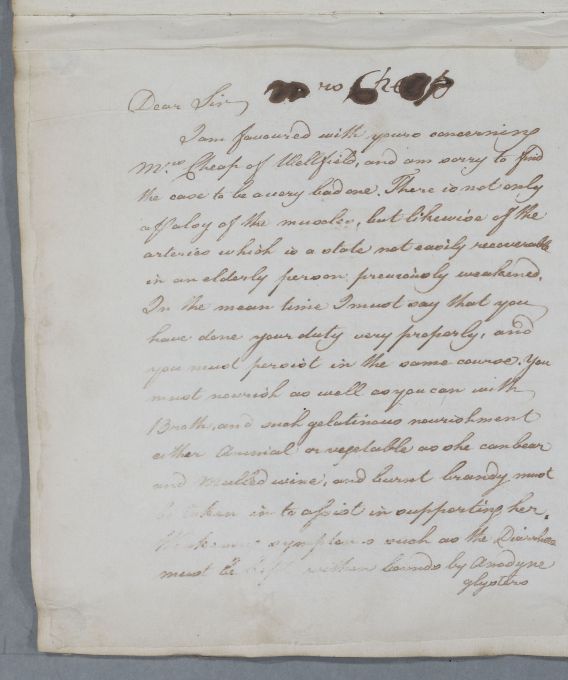 Mrs Cheap
Dear Sir
I am favoured with yours concerning
Mrs Cheap of Wellfield, and am sorry to find
the case to be a very bad one. There is not only
a Palsy of the muscles, but likewise of the
arteries which is a state not easily recoverable
in an elderly person previously weakened.
In the mean time I must say that you
have done your duty very properly, and
you must persist in the same course. You
must nourish as well as you can with
Broth, and such gelatinous nourishment
either Animal or vegetable as she can bear
and Mulled wine, and burnt brandy must
be taken in to assist in supporting her.
symptoms such as the Diarrhœa
must be kept within bounds by Anodyne
glysters